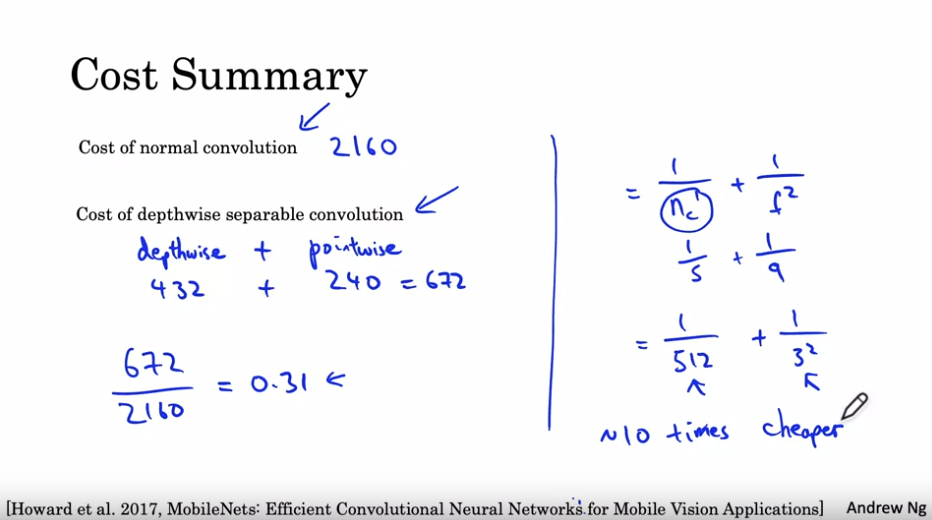 Cost Summary
Cost of normal convolution 2160
Cost of depthwise separable convolution
depthwise + pointwise
432 + 240 = 672
672/2160 = 0.31 ←
= 1/nc' + 1/f²
1/5 + 1/9
= 1/512 + 1/3²
~10 times cheaper
[Howard et al. 2017, MobileNets: Efficient Convolutional Neural Networks for Mobile Vision Applications] Andrew Ng